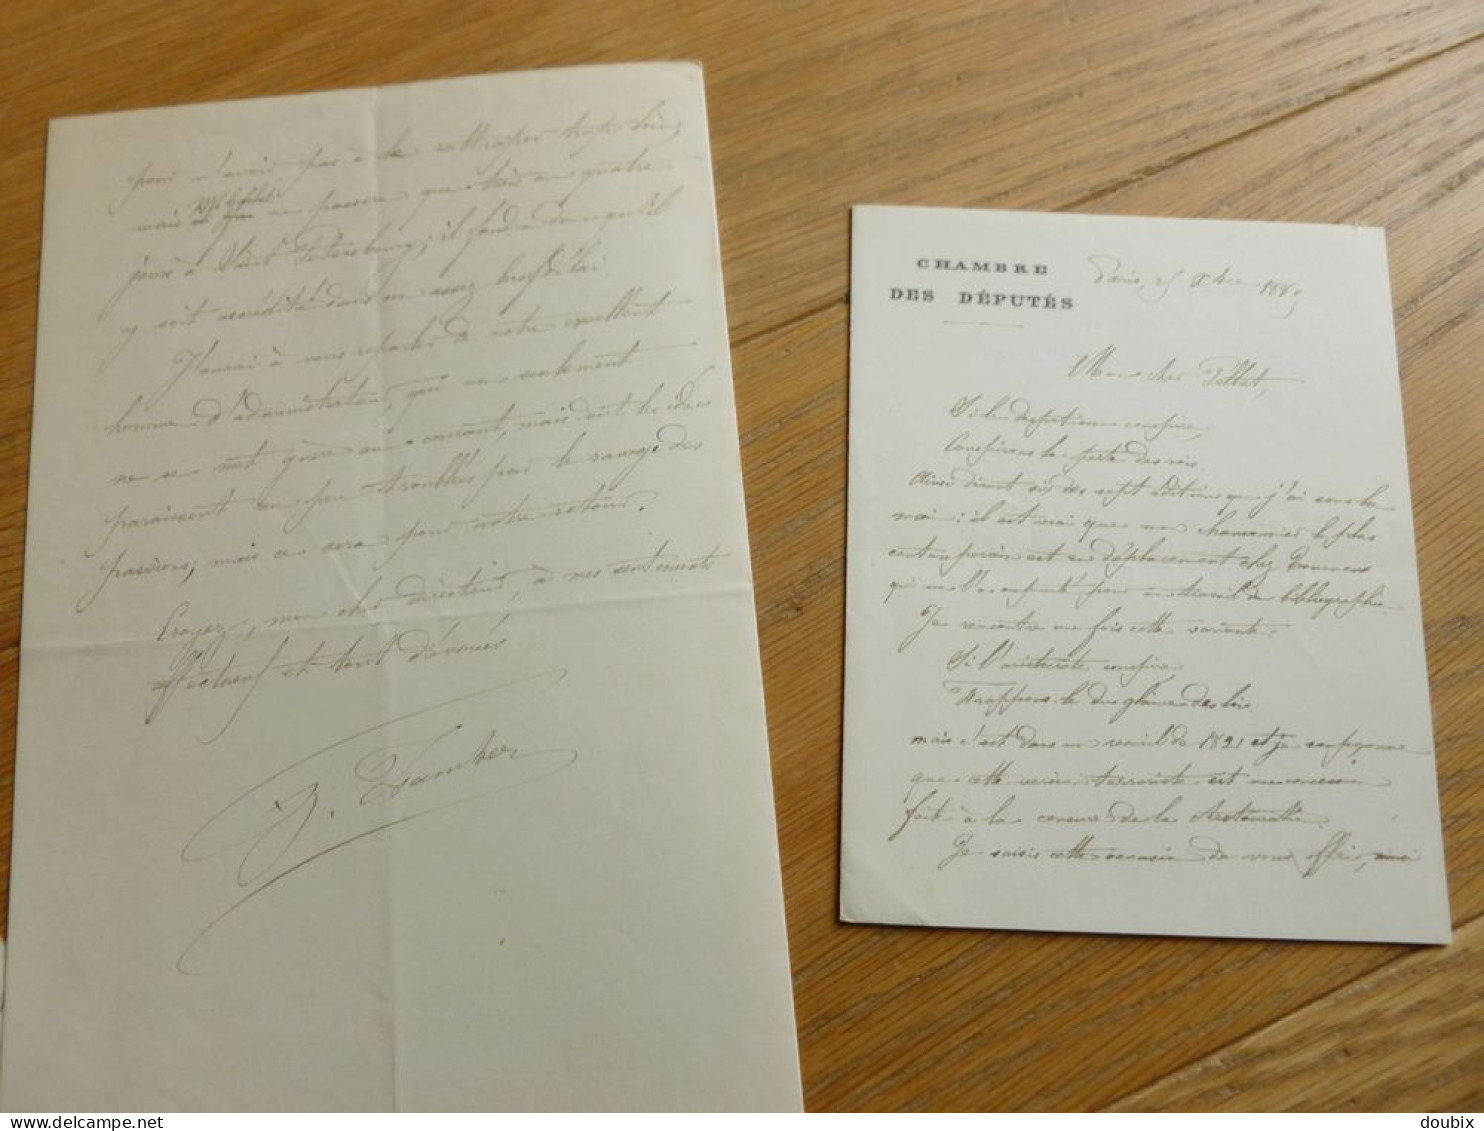 pour n'avoir pas à le rattraper trop loin;
mais ne passera que trois ou quatre
jours à Saint Petersbourg; il faudra donc qu'il
y soit accrédité dans un assez bref délai.
J'aurai à vous reparler de notre excellent
homme d'administration, qui non seulement
ne se met guère au courant, mais dont les idées
paraissent un peu troublées par le ravage des
passions; mais ce sera pour votre retour.
Croyez, mon cher directeur, à mes sentiments
affectueux et tout dévoués
CHAMBRE
DES DÉPUTÉS
Paris, 25 Xbre 188
Mon cher
Si le despotisme conspire,
Conspirons la perte des rois.
Ainsi disent six des sept éditions que j'ai sous la
main: il est vrai que mon chansonnier le plus
contemporain est en déplacement chez
qui me l'a emprunté pour un travail de bibliographie.
Je rencontre une fois cette variante:
Si l'aristocrate conspire
Frappons-le du glaive des lois.
mais c'est dans un recueil de 1821 et je soupçonne
que cette version terroriste est une concession
faite à la censure de la Restauration.
Je saisis cette occasion de vous offrir, ainsi
doubix